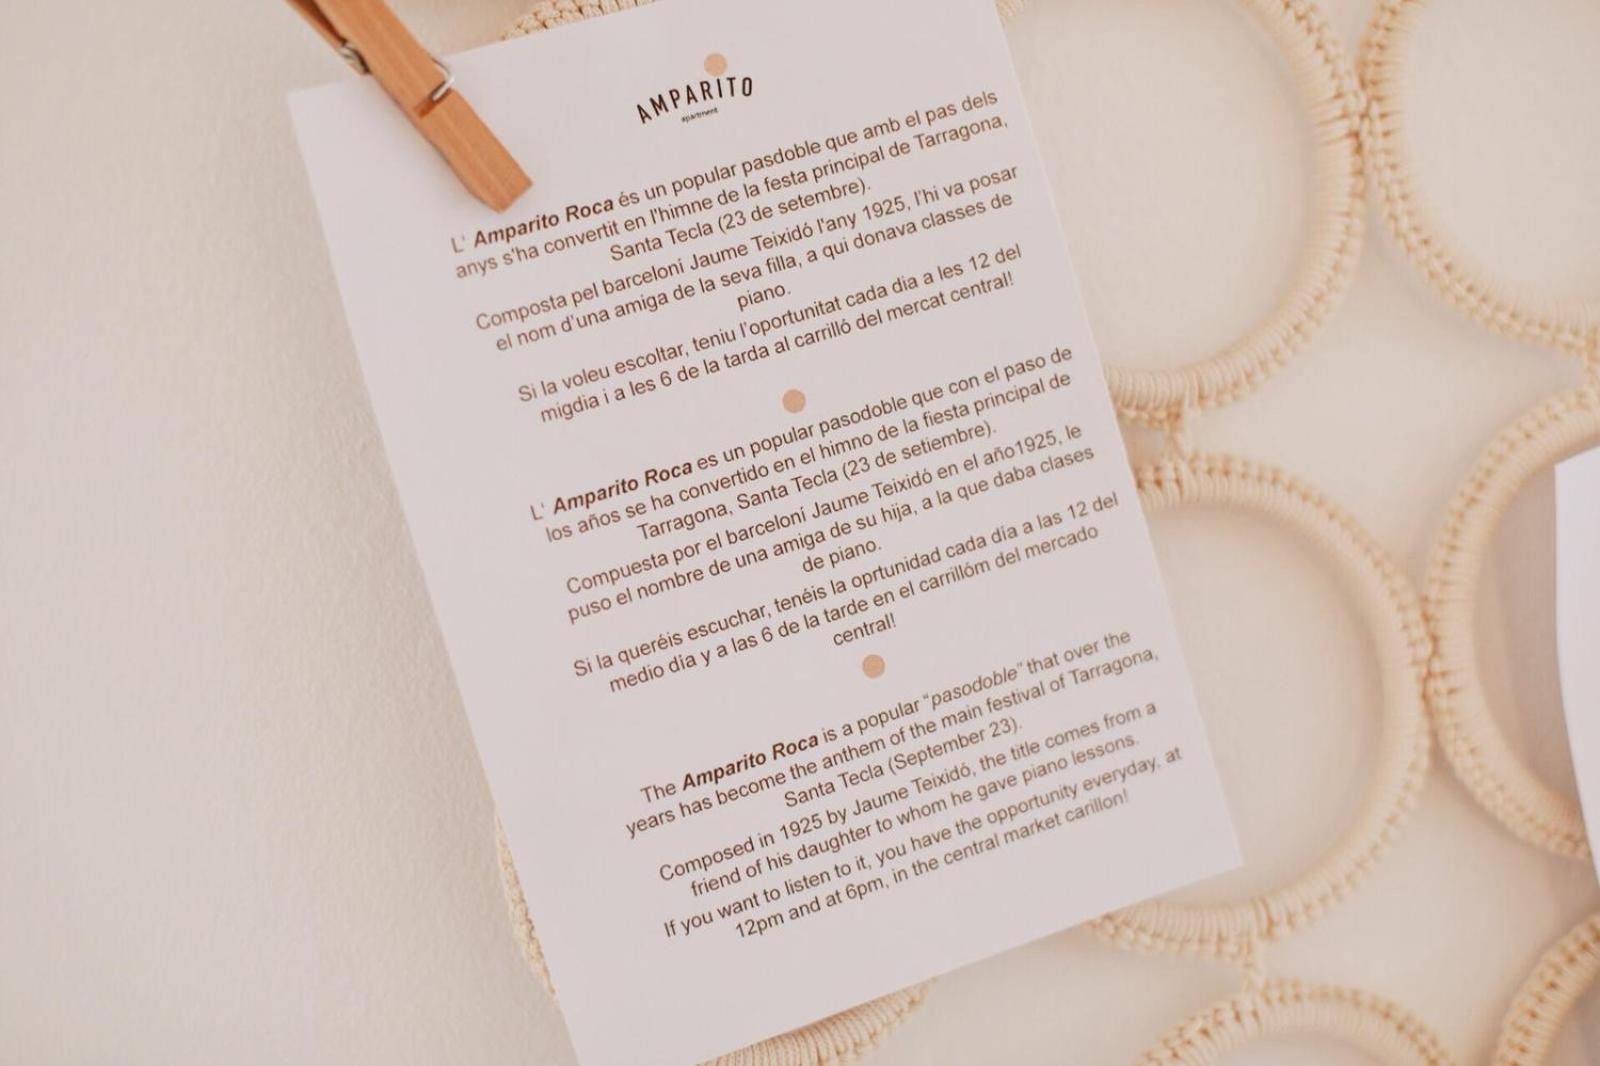 AMPARITO
apartment
L' Amparito Roca és un popular pasdoble que amb el pas dels
anys s'ha convertit en l'himne de la festa principal de Tarragona,
Santa Tecla (23 de setembre).
Composta pel barceloní Jaume Teixidó l'any 1925, l'hi va posar
el nom d'una amiga de la seva filla, a qui donava classes de
piano.
Si la voleu escoltar, teniu l'oportunitat cada dia a les 12 del
migdia i a les 6 de la tarda al carrilló del mercat central!
L' Amparito Roca es un popular pasodoble que con el paso de
los años se ha convertido en el himno de la fiesta principal de
Tarragona, Santa Tecla (23 de setiembre).
Compuesta por el barceloní Jaume Teixidó en el año1925, le
puso el nombre de una amiga de su hija, a la que daba clases
de piano.
Si la queréis escuchar, tenéis la oprtunidad cada día a las 12 del
medio día y a las 6 de la tarde en el carrillóm del mercado
central!
The Amparito Roca is a popular "pasodoble" that over the
years has become the anthem of the main festival of Tarragona,
Santa Tecla (September 23).
Composed in 1925 by Jaume Teixidó, the title comes from a
friend of his daughter to whom he gave piano lessons.
If you want to listen to it, you have the opportunity everyday, at
12pm and at 6pm, in the central market carillon!